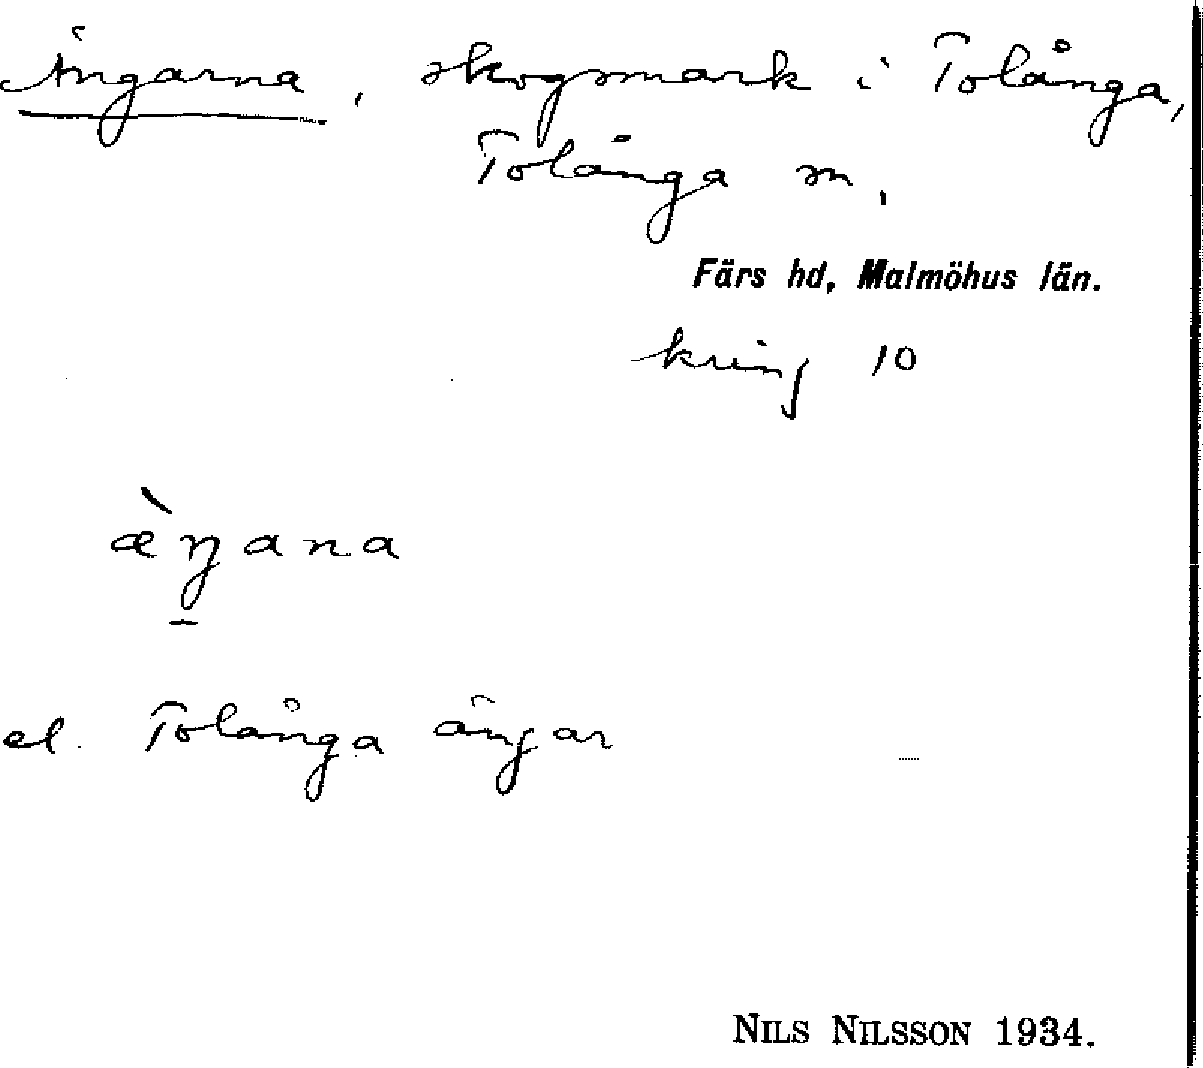 Ängarna, skogsmark i Tolånga,
Tolånga sn,
Färs hd, Malmöhus län.
kring 10
æ̀ŋana
el. Tolånga ängar
NILS NILSSON 1934.